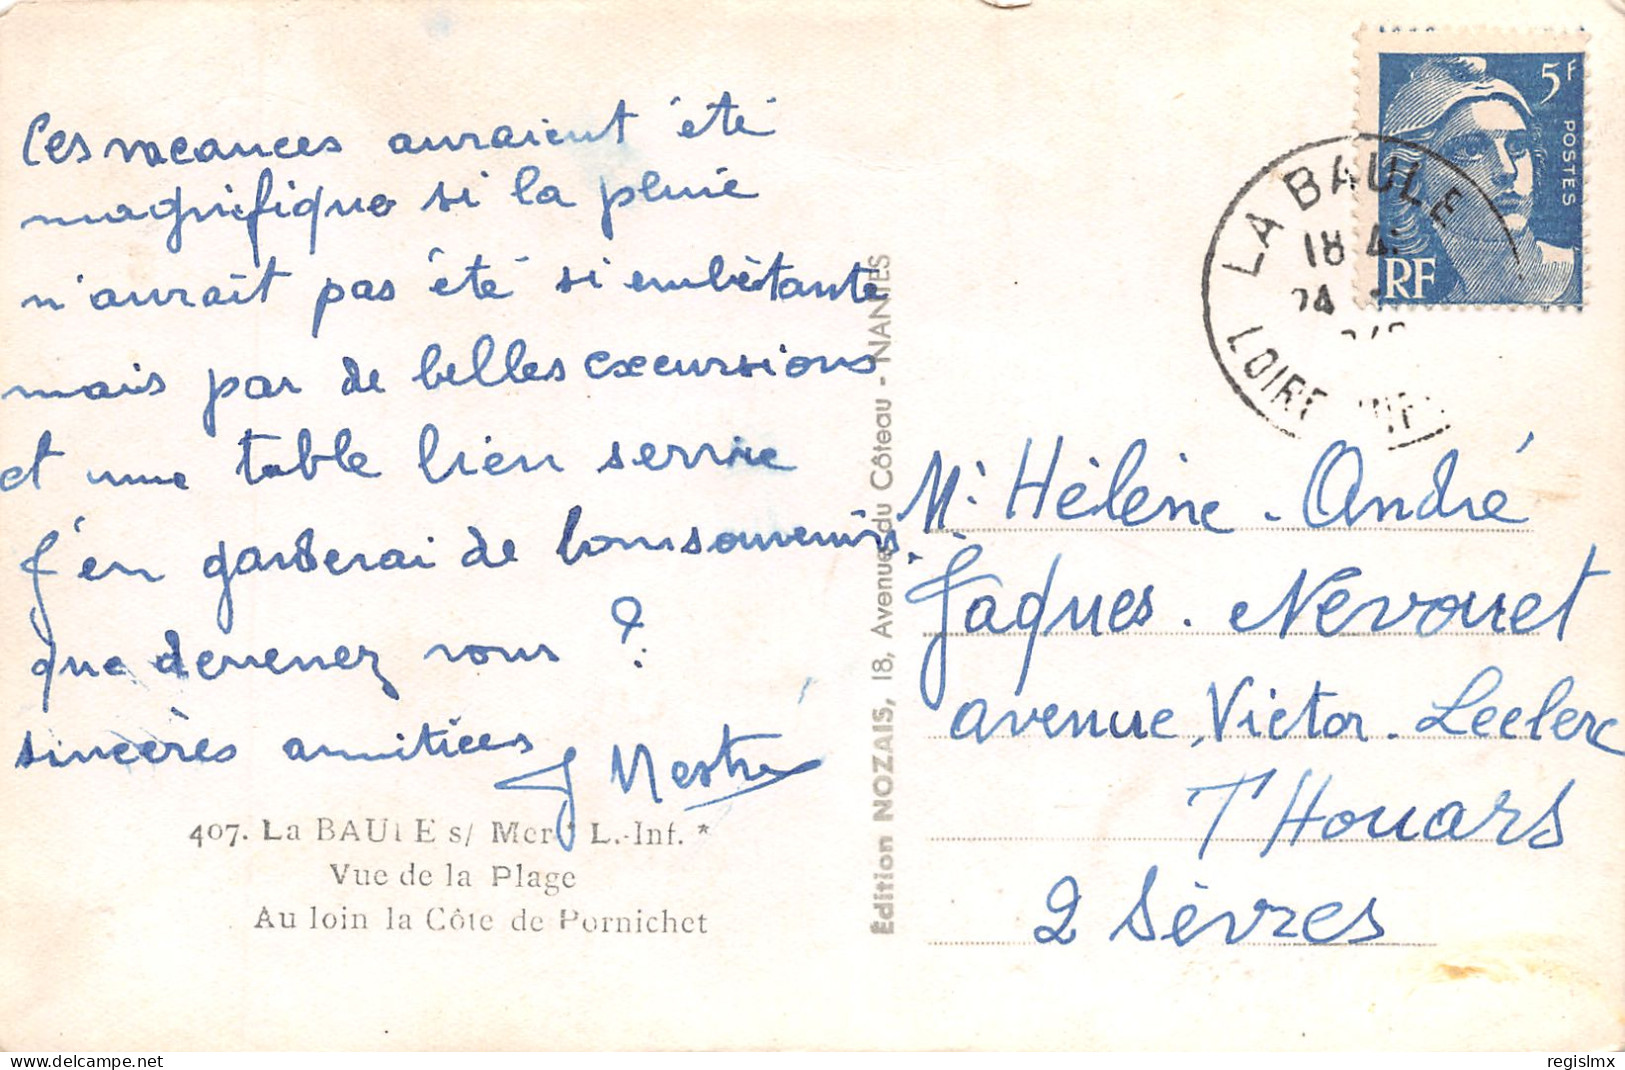 Ces vacances auraient été
magnifique si la pluie
n'aurait pas été si embêtante
mais par de belles excursions
et une table bien servie
J'en garderai de bons souvenirs.
que devenez vous ?
sincères amitiées
J Mestre
407. La BAULE s/ Mer * L.-Inf. *
Vue de la Plage
Au loin la Côte de Pornichet
Édition NOZAIS, 18, Avenue du Côteau - NANTES
5F
POSTES
RF
LA BAULE
18
24
LOIRE INF
Mr Hélène - André
Jaques. Nevouet
avenue, Victor. Leclerc
THouars
2 Sèvres
regislmx